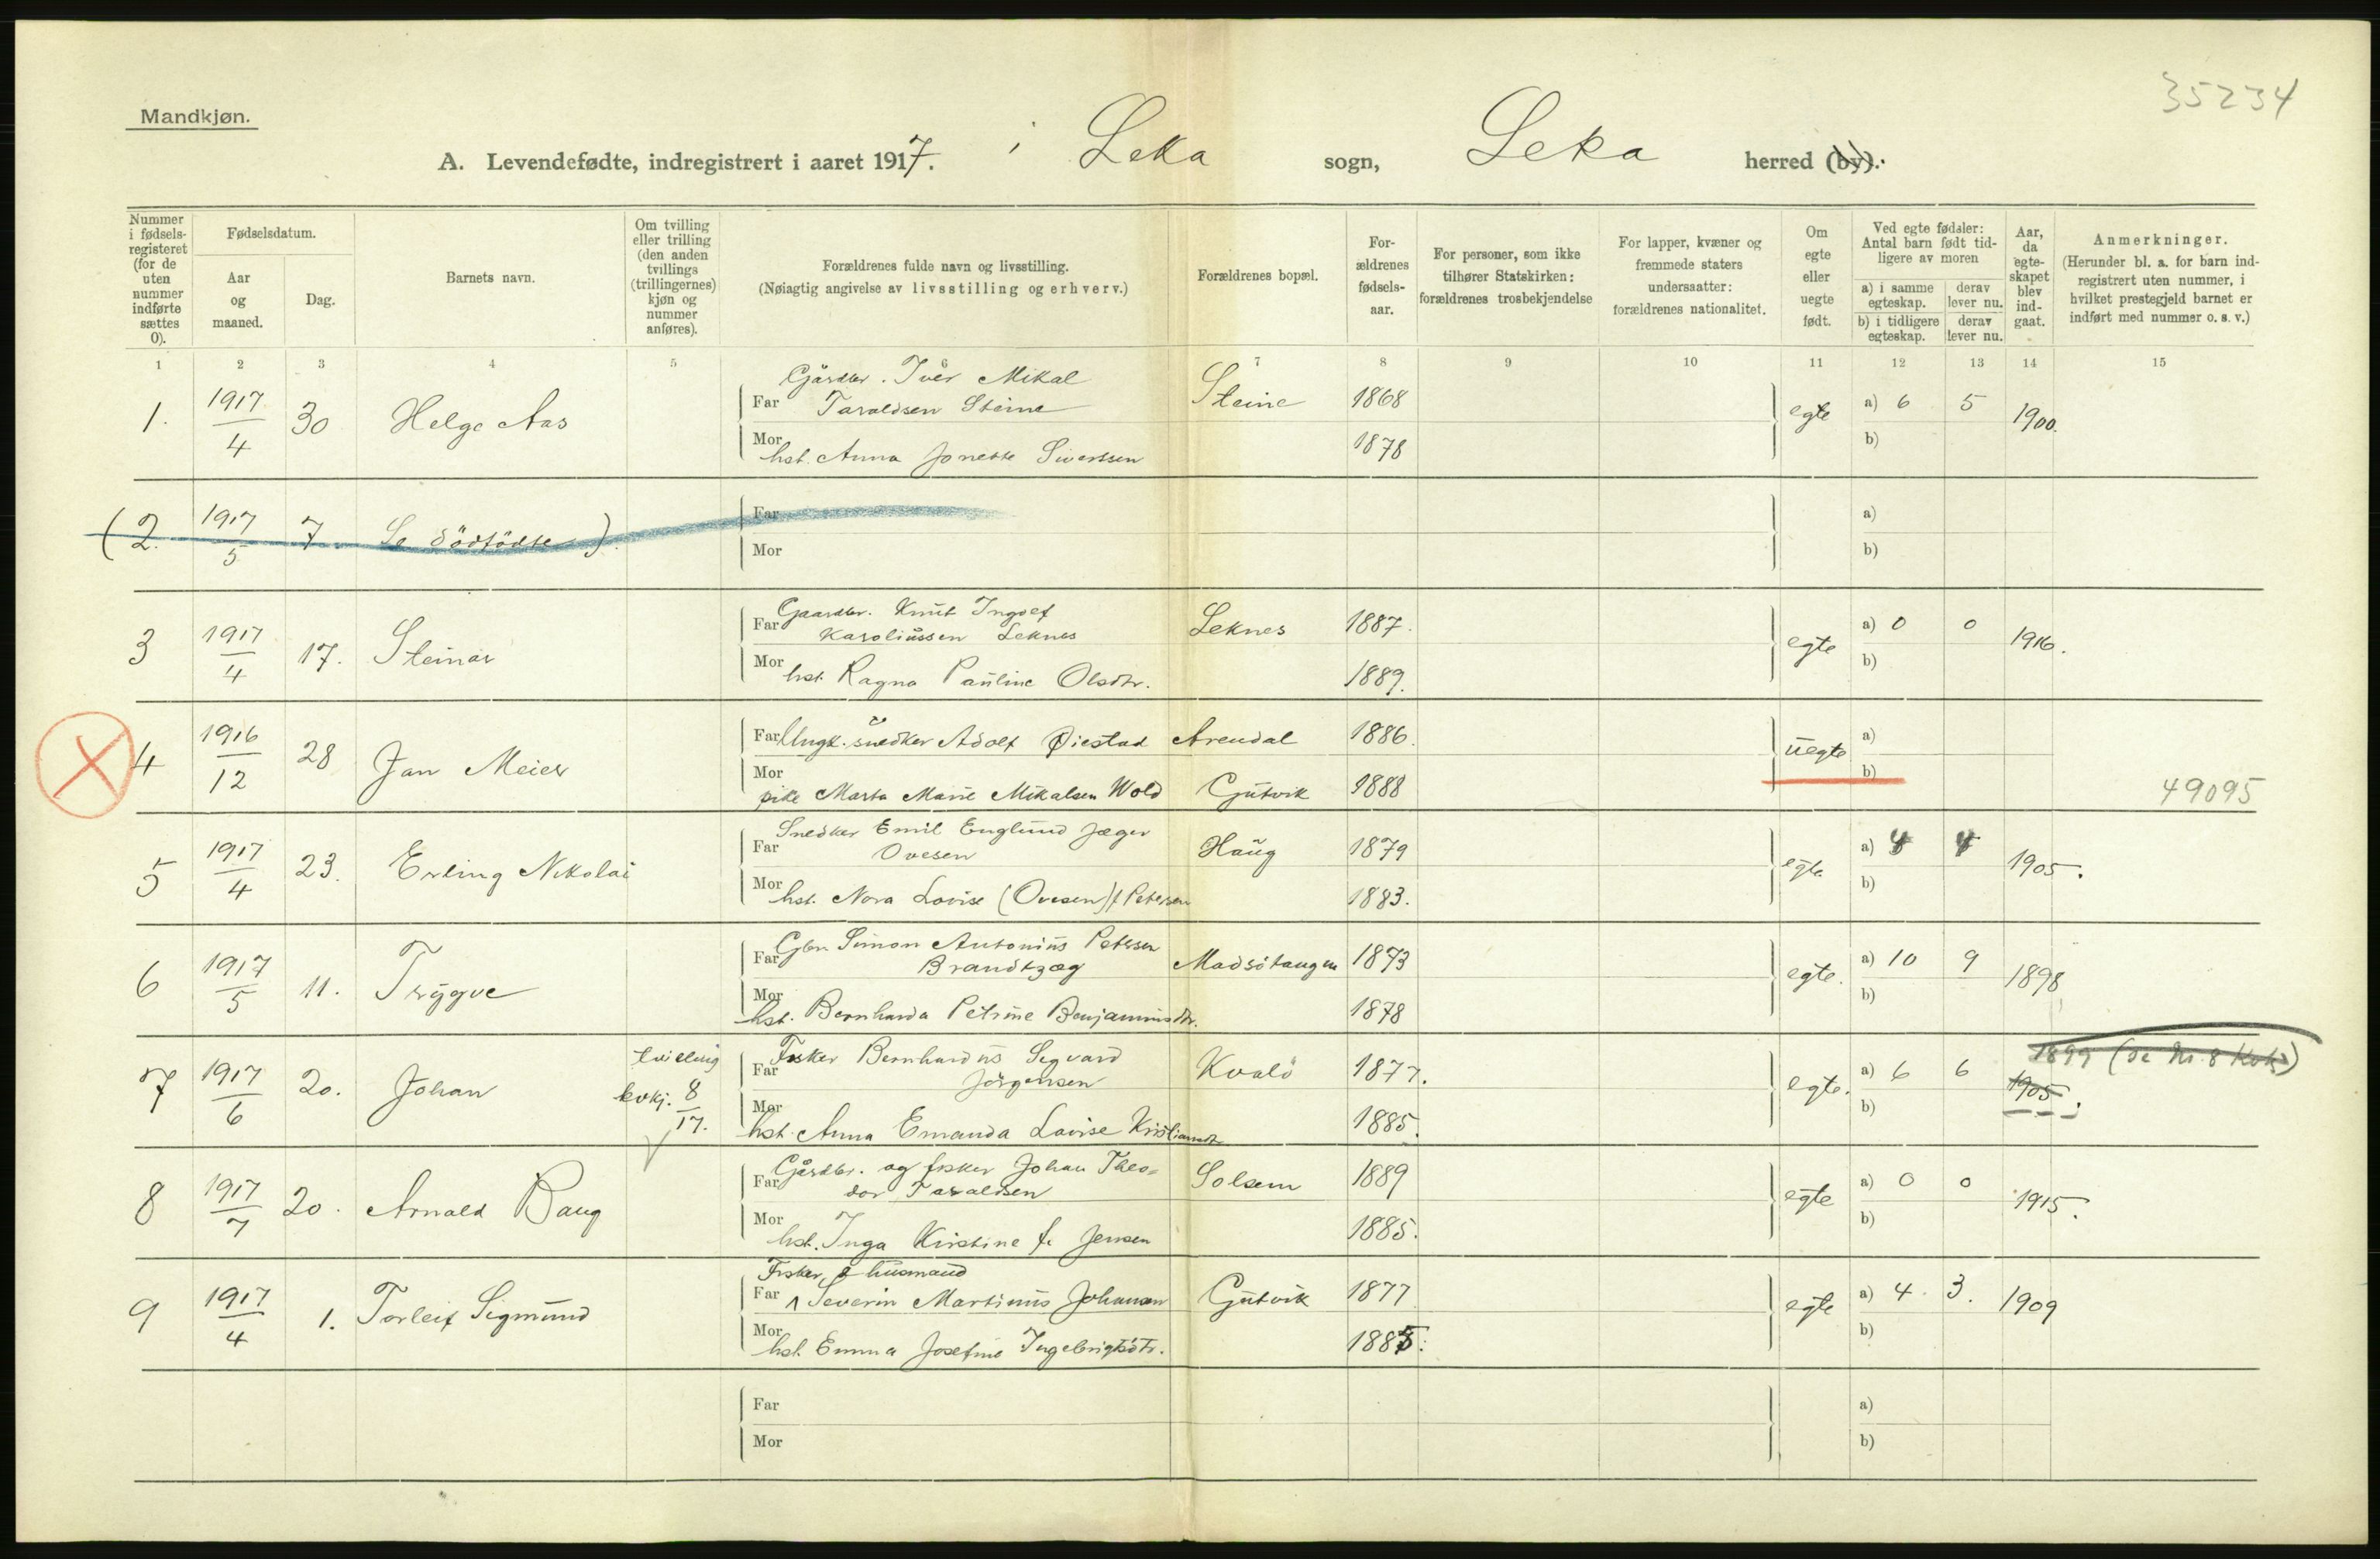 35234
Mandkjøn.
A. Levendefødte, indregistrert i aaret 1917. i Leka sogn, Leka herred (by).
Nummer i fødsels-registeret (for de uten nummer indførte sættes 0).
Fødselsdatum.
Aar og maaned.
Dag.
Barnets navn.
Om tvilling eller trilling (den anden tvillings (trillingernes) kjøn og nummer anføres).
Forældrenes fulde navn og livsstilling.
(Nøiagtig angivelse av livsstilling og erhverv.)
Forældrenes bopæl.
For-ældrenes fødsels-aar.
For personer, som ikke tilhører Statskirken: forældrenes trosbekjendelse
For lapper, kvæner og fremmede staters undersaatter: forældrenes nationalitet.
Om egte eller uegte født.
Ved egte fødsler: Antal barn født tid-ligere av moren
a) i samme egteskap. derav lever nu.
b) i tidligere egteskap. derav lever nu.
Aar, da egte-skapet blev ind-gaat.
Anmerkninger.
(Herunder bl. a. for barn ind-registrert uten nummer, i hvilket prestegjeld barnet er indført med nummer o. s. v.)
1 2 3 4 5 6 7 8 9 10 11 12 13 14 15
1. 1917/4 30 Helge Aas
Far Gårdbr. Iver Mikal
Taraldsen Steine Steine 1868
Mor hst. Anna Jonette Sivertsen 1878
egte a) 6 5 1900.
b)
(2. 1917/5 7 Se dödfödte).
Far
Mor
a)
b)
3 1917/4 17. Steinar
Far Gaardbr. Knut Ingolf
Karoliussen Leknes Leknes 1887.
Mor hst. Ragna Pauline Olsdtr. 1889.
egte a) 0 0 1916.
b)
4 1916/12 28 Jan Meier
Far Ungk. snedker Adolf Øiestad Arendal 1886.
Mor pike Marta Marie Mikalsen Wold Gutvik 1888
uegte a)
b)
49095
5 1917/4 23. Erling Nikolai
Far Snedker Emil Englund Jæger
Ovesen Haug 1879
Mor hst. Nora Lovise (Ovesen) f Petersen 1883.
egte a) 4 4 1905.
b)
6 1917/5 11. Trygve
Far Gbr. Simon Antonius Petersen
Brandtzæg Madsötangen 1873
Mor hst. Bernharda Petrine Benjaminsdtr. 1878
egte. a) 10 9 1898
b)
7 1917/6 20. Johan
tvilling
kvkj. 8/17.
Far Fisker Bernhardus Sigvard
Jörgensen Kvalö 1877.
Mor hst. Anna Emanda Lovise Kristiansdtr 1885.
egte. a) 6 6 1905.
b)
1899 (se Nr. 8 Kvk.)
8 1917/7 20. Arnald Baug
Far Gårdbr. og fisker Johan Theo-
dor Taraldsen Solsem 1889
Mor hst. Inga Kirstine f. Jensen 1885.
egte a) 0 0 1915.
b)
9 1917/4 1. Torleif Sigmund
Fisker & husmand
Far Severin Martinus Johansen Gutvik 1877
Mor hst. Emma Josefine Ingebrigtsdtr. 1885.
egte a) 4. 3. 1909
b)
Far
Mor
a)
b)